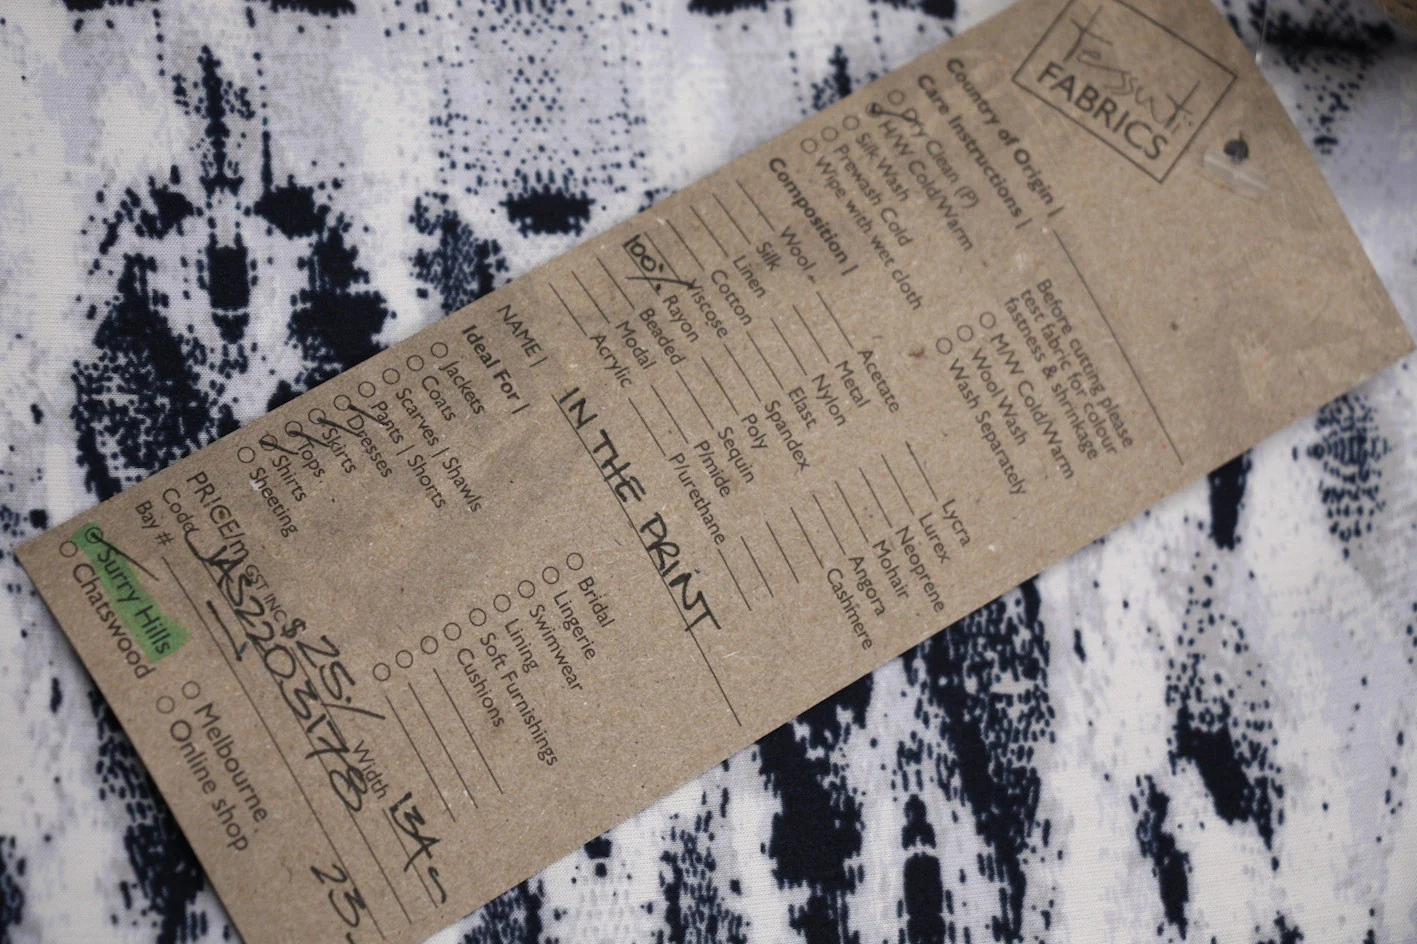 tessuti
FABRICS
Country of Origin |
Care Instructions |
Dry Clean (P)
H/W Cold/Warm
Silk Wash
Prewash Cold
Wipe with wet cloth
Before cutting please
test fabric for colour
fastness & shrinkage
M/W Cold/Warm
Wool Wash
Wash Separately
Composition |
Wool
Silk
Linen
Cotton
Viscose
100% Rayon
Beaded
Modal
Acrylic
Acetate
Metal
Nylon
Elast
Spandex
Poly
Sequin
P/mide
P/urethane
Lycra
Lurex
Neoprene
Mohair
Angora
Cashmere
NAME | IN THE PRINT
Ideal For |
Jackets
Coats
Scarves | Shawls
Pants | Shorts
Dresses
Skirts
Tops
Shirts
Sheeting
Bridal
Lingerie
Swimwear
Lining
Soft Furnishings
Cushions
PRICE/m GST INC $ 25./ Width 134
Code JAB2203178
Bay # 23
Surry Hills
Chatswood
Melbourne
Online shop